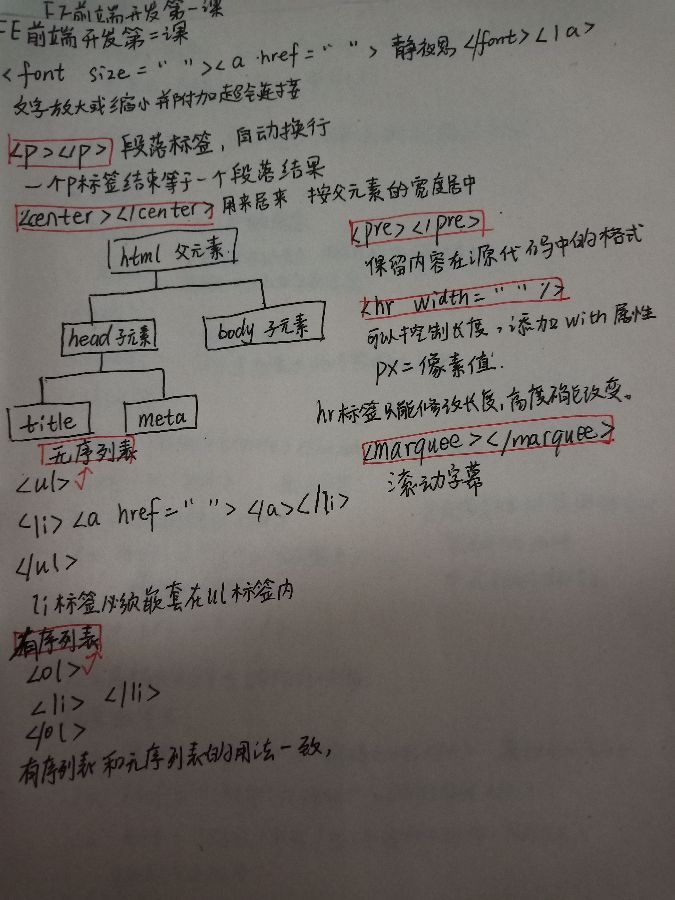 FE前端开发第一课
FE前端开发第二课
<font size=" "><a href=" "> 静夜思 </font></a>
文字放大或缩小并附加超链接
<p></p> 段落标签，自动换行
一个P标签结束等于一个段落结果
<center></center> 用来居来 按父元素的宽度居中
html 父元素
head 子元素
body 子元素
title
meta
无序列表
<ul>
<li><a href=" "> </a></li>
</ul>
li标签必须嵌套在ul标签内
有序列表
<ol>
<li> </li>
</ol>
有序列表和无序列表的用法一致，
<pre></pre>
保留内容在源代码中的格式
<hr width=" "/>
可以控制长度，添加with属性
px=像素值.
hr标签只能修改长度，高度确定改变。
<marquee></marquee>
滚动字幕